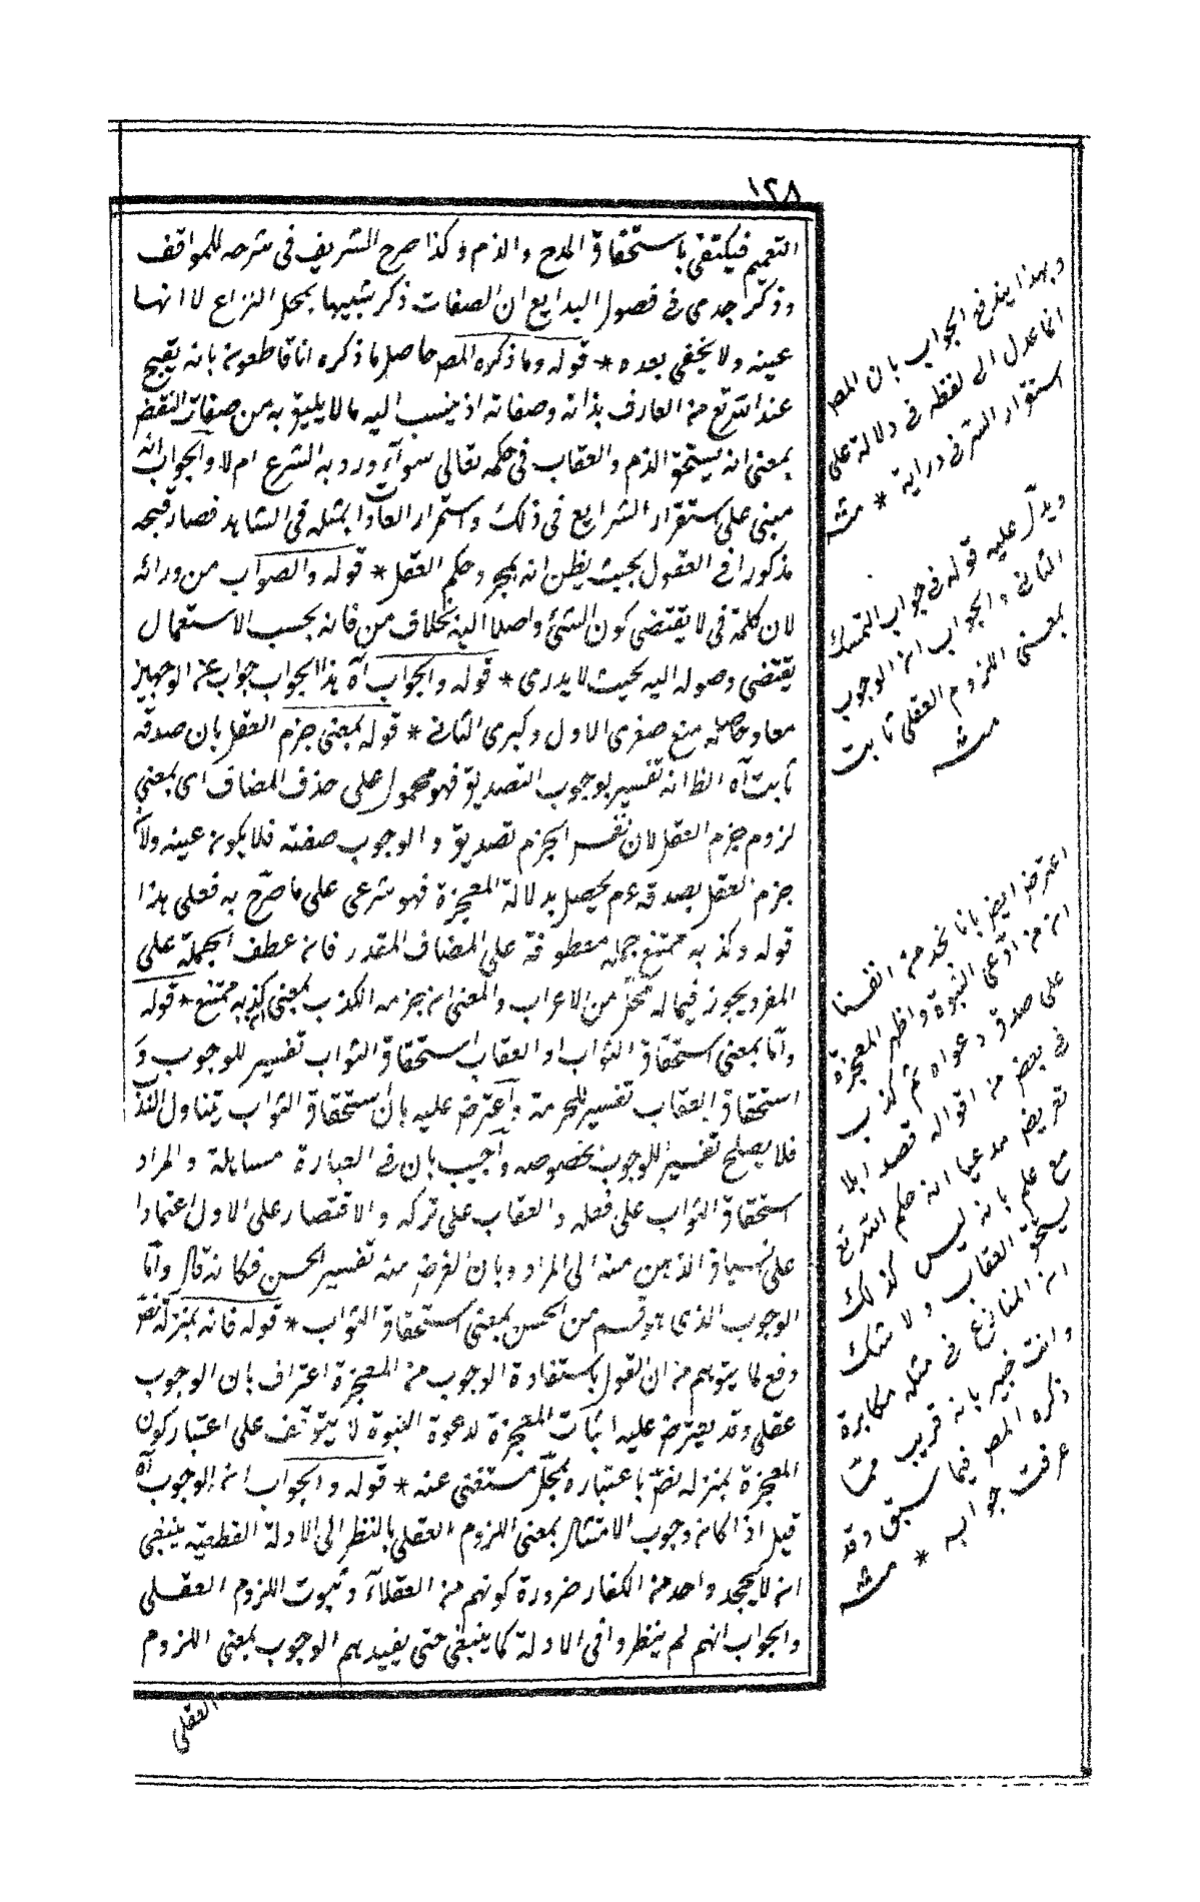 ١٢٨
التعميم فيكتفى باستحقاق المدح والذم وكذا صرح الشريف فى شرحه للمواقف
وذكر جدى فى فصول البدايع ان الصفات ذكر تشبيها بمحل النزاع لا انها
عينه ولا يخفى بعده * قوله وما ذكره المص حاصل ما ذكره انا قاطعون بانه يقبح
عند الله تع من العارف بذاته وصفاته ان ينسب اليه ما لا يليق به من صفات النقص
بمعنى انه يستحق الذم والعقاب فى حكمه تعالى سوآء ورد به الشرع ام لا والجواب انه
مبنى على استقرار الشرايع فى ذلك واستمرار العادات بمثله فى الشاهد فصار قبحه
مذكورا فى العقول بحيث يظن انه بمجرد حكم العقل * قوله والصواب من ورائه
لان كلمة فى لا يقتضى كون الشئ واصلا اليه بخلاف من فانه بحسب الاستعمال
يقتضى وصوله اليه بحيث لا يدرى * قوله والجواب آه هذا الجواب جواب عن الوجهين
معا وحاصله منع صغرى الاول وكبرى الثانى * قوله بمعنى جزم العقل بان صدقه
ثابت آه الظ انه تفسير لوجوب التصديق فهو محمول على حذف المضاف اى بمعنى
لزوم جزم العقل لان نفس الجزم تصديق والوجوب صفته فلا يكون عينه ولان
جزم العقل بصدقه عم يحصل بدلالة المعجزة فهو شرعى على ما صرح به فعلى هذا
قوله وكذبه ممتنع جملة معطوفة على المضاف المقدر فان عطف الجملة على
المفرد يجوز فيما له محل من الاعراب والمعنى ان جزمه الكذب بمعنى ان كذبه ممتنع * قوله
واما بمعنى استحقاق الثواب او العقاب استحقاق الثواب تفسير للوجوب و
استحقاق العقاب تفسير للحرمة واعترض عليه بان استحقاق الثواب يتناول الندب
فلا يصلح تفسيرا للوجوب بخصوصه واجيب بان فى العبارة مساهلة والمراد
استحقاق الثواب على فعله والعقاب على تركه والاقتصار على الاول اعتمادا
على انسياق الذهن منه الى المراد وبان الغرض منه تفسير الحسن فكانه قال واما
الوجوب الذى هو قسم من الحسن بمعنى استحقاق الثواب * قوله فانه بمنزلة نص
دفع لما يتوهم من ان القول باستفادة الوجوب من المعجزة اعتراف بان الوجوب
عقلى وقد يعترض عليه اثبات المعجزة لدعوة النبوة لا يتوقف على اعتبار كون
المعجزة بمنزله نص باعتباره بمحل مستغنى عنه * قوله والجواب ان الوجوب آه
قيل اذا كان وجوب الامتثال بمعنى اللزوم العقلى بالنظر الى الادلة القطعية ينبغى
ان لا يجحد واحد من الكفار ضرورة كونهم من العقلآء وثبوت اللزوم العقلى
والجواب انهم لم ينظروا فى الادلة كما ينبغى حتى يفيد بهم الوجوب بمعنى اللزوم
العقلى
وبهذا يندفع الجواب بان المص
انما عدل الى لفظه فى دلالة على
استقرار السر فى درايه * منه
ويدل عليه قوله فى جواب التمسك
الثانى والجواب ان الوجوب
بمعنى اللزوم العقلى ثابت
منه
اعترض ايض بانا نجد من انفسنا
ان من ادعى النبوة واظهر المعجزة
على صدق دعواه ثم كذب
فى بعض من اقواله قصدا بلا
تعريض مدعيا انه حكم الله تع
مع علمه بانه ليس كذلك
يستحق العقاب ولا شك
ان المنازع فى مثله مكابرة
وانت خبير بانه قريب مما
ذكره المص فيما سبق وقد
عرفت جوابه * منه